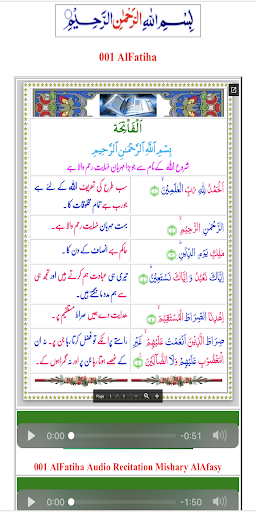 بِسْمِ اللهِ الرَّحْمٰنِ الرَّحِيْمِ
001 AlFatiha
اَلْفَاتِحَة
بِسْمِ اللَّهِ الرَّحْمَٰنِ الرَّحِيمِ
شروع اللہ کے نام سے جو بڑا مہربان نہایت رحم والا ہے
اَلْحَمْدُ لِلَّهِ رَبِّ الْعَلَمِيْنَ
سب طرح کی تعریف اللہ کے لئے ہے
جو رب ہے تمام مخلوقات کا۔
الرَّحْمٰنِ الرَّحِيْمِ
بہت مہربان نہایت رحم والا ہے۔
مٰلِكِ يَوْمِ الدِّيْنِ
حاکم ہے انصاف کے دن کا۔
اِيَّاكَ نَعْبُدُ وَ اِيَّاكَ نَسْتَعِيْنُ
تیری ہی عبادت ہم کرتے ہیں اور تجھ ہی
سے ہم مدد مانگتے ہیں۔
اِهْدِنَا الصِّرَاطَ الْمُسْتَقِيْمَ
ہدایت دے ہمیں صراط مستقیم پر۔
صِرَاطَ الَّذِيْنَ اَنْعَمْتَ عَلَيْهِمْ غَيْرِ
الْمَغْضُوْبِ عَلَيْهِمْ وَلَا الضَّآلِّيْنَ
راستے پر انکے تو فضل کرتا رہا جن پر۔ نہ ان
کے غصے ہوتا رہا جن پر اور نہ گمراہوں کے۔
Page 1 / 1
0:00 -0:51
001 AlFatiha Audio Recitation Mishary AlAfasy
0:00 -1:50